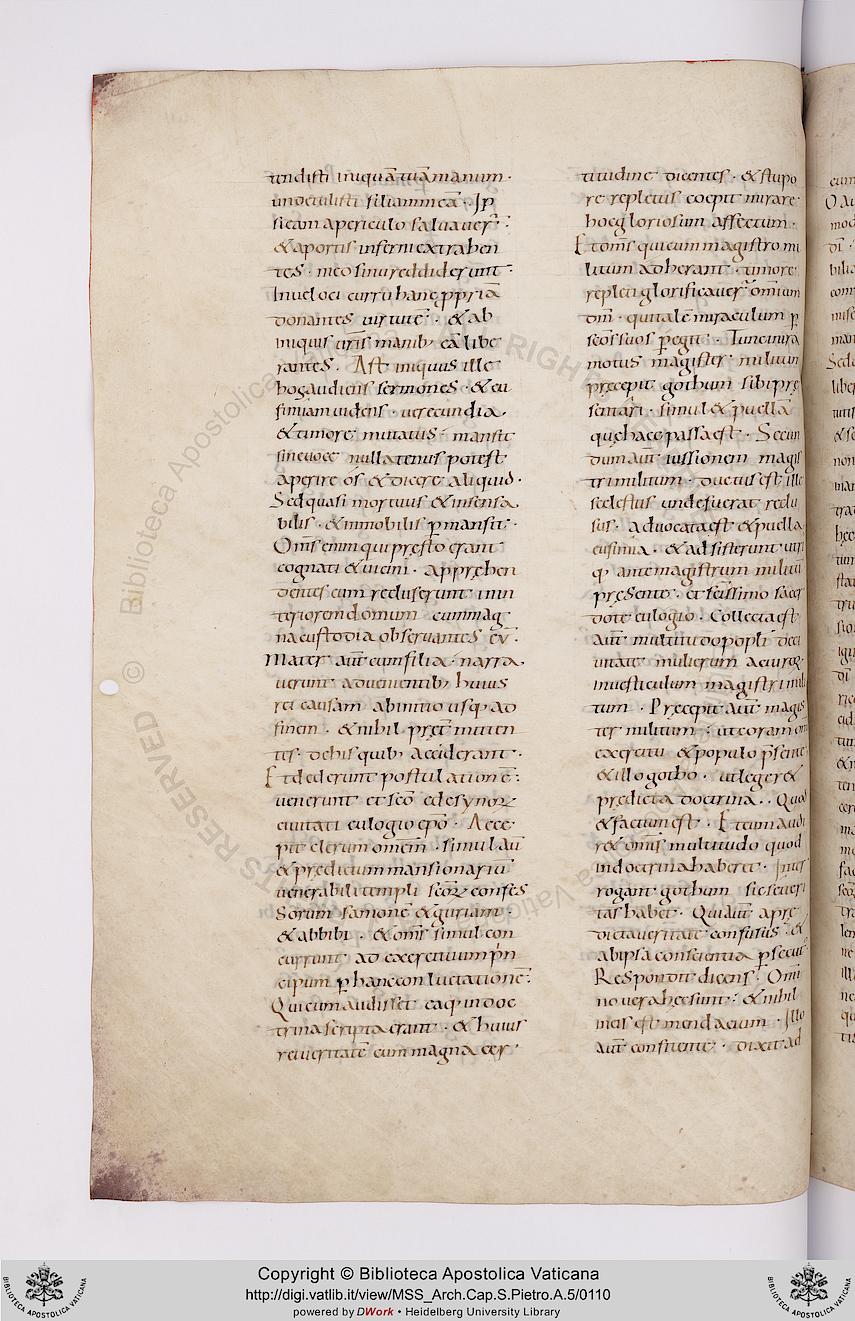 tendisti iniquā tuā manum ·
un occidisti filiam meā · Ip
si eam a periculo salvaver̄ ·
& a portis inferni extrahen
tes · meo sinu reddiderunt ·
In veloci curru hanc ꝓpriā
donantes virtutē · & ab
iniquis vr̄is manib; eā libe
rantes · Ast iniquus ille
hoc audiens sermones · & eu
fimiam videns · verecundia
& timore mutatus · mansit
sine voce nullatenus potest
aperire os & dicere aliquid ·
Sed quasi mortuus & insensa
bilis · & immobilis ꝑmansit ·
Om̄s enim qui pręsto erant
cognati & vicini · apprehen
dentes eum recluserunt in in
teriorem domum cum mag
na custodia observantes eū ·
Mater aut̄ cum filia · narra
verunt advenientib; huius
rei causam ab initio usq; ad
finem · & nihil pręt̄mitten
tes · de his quib; acciderant ·
Et dederunt postulationē ·
venerunt et sc̄o edesynoꝝ
civitati eulogio ep̄o · Acce
pit clerum omēm · simul aū
& predictum mansionariū
venerabili templi sc̄oꝝ confes
sorum samonę & guriam ·
& abbibi · & om̄s simul con
currunt ad exercituum pn̄
cipum ꝑ hanc conluctationē ·
Qui cum audisset ea q̨ in doc
trina scripta erant · & huius
rei veritatē cum magna cer
titudine dicentes · & stupo
re repletus coepit mirare
hoc gloriosum affectum ·
Et om̄s qui cum magistro mi
litum adherant · timore
repleti glorificaver̄ omnium
dn̄m · qui talē miraculum ꝑ
sc̄os suos pegit · Tunc mira
motus magister militum
pręcepit gothum sibi pre
sentari · simul & puellā
quę hacc passa est · Secun
dum aut̄ iussionem magis
tri militum · ductus est ille
scelestus unde fuerat reclu
sus · advocata est & puella
eufimia · & adsisterunt utri
q; ante magistrum militū
pręsente · et sc̄issimo sacer
dote eulogio · Collecta est
aut̄ multitudo popli de ci
vitate mulierum ac viroꝝ
in vesticulum magistri mili
tum · Pręcepit aut̄ magis
ter militum · ut coram om̄i
exercitu & populo p̄sente
& illo gotho · ut leger&
predicta doctrina · Quod
& factum est · Et cum audi
r& om̄is multitudo quod
in doctrina haberet · Inter
rogant gothum si c seueri
tas habet · Qui aut̄ a prę
dicta veritate confusus · &
ab ipsa conscientia ꝑsecut
Respondit dicens · Omi
no vera hec sunt · & nihil
in eis est mendacium · Illo
aut̄ confitente · dixit ad
Copyright © Biblioteca Apostolica Vaticana
http://digi.vatlib.it/view/MSS_Arch.Cap.S.Pietro.A.5/0110
powered by DWork • Heidelberg University Library